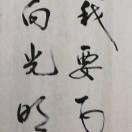 我要而
向光明